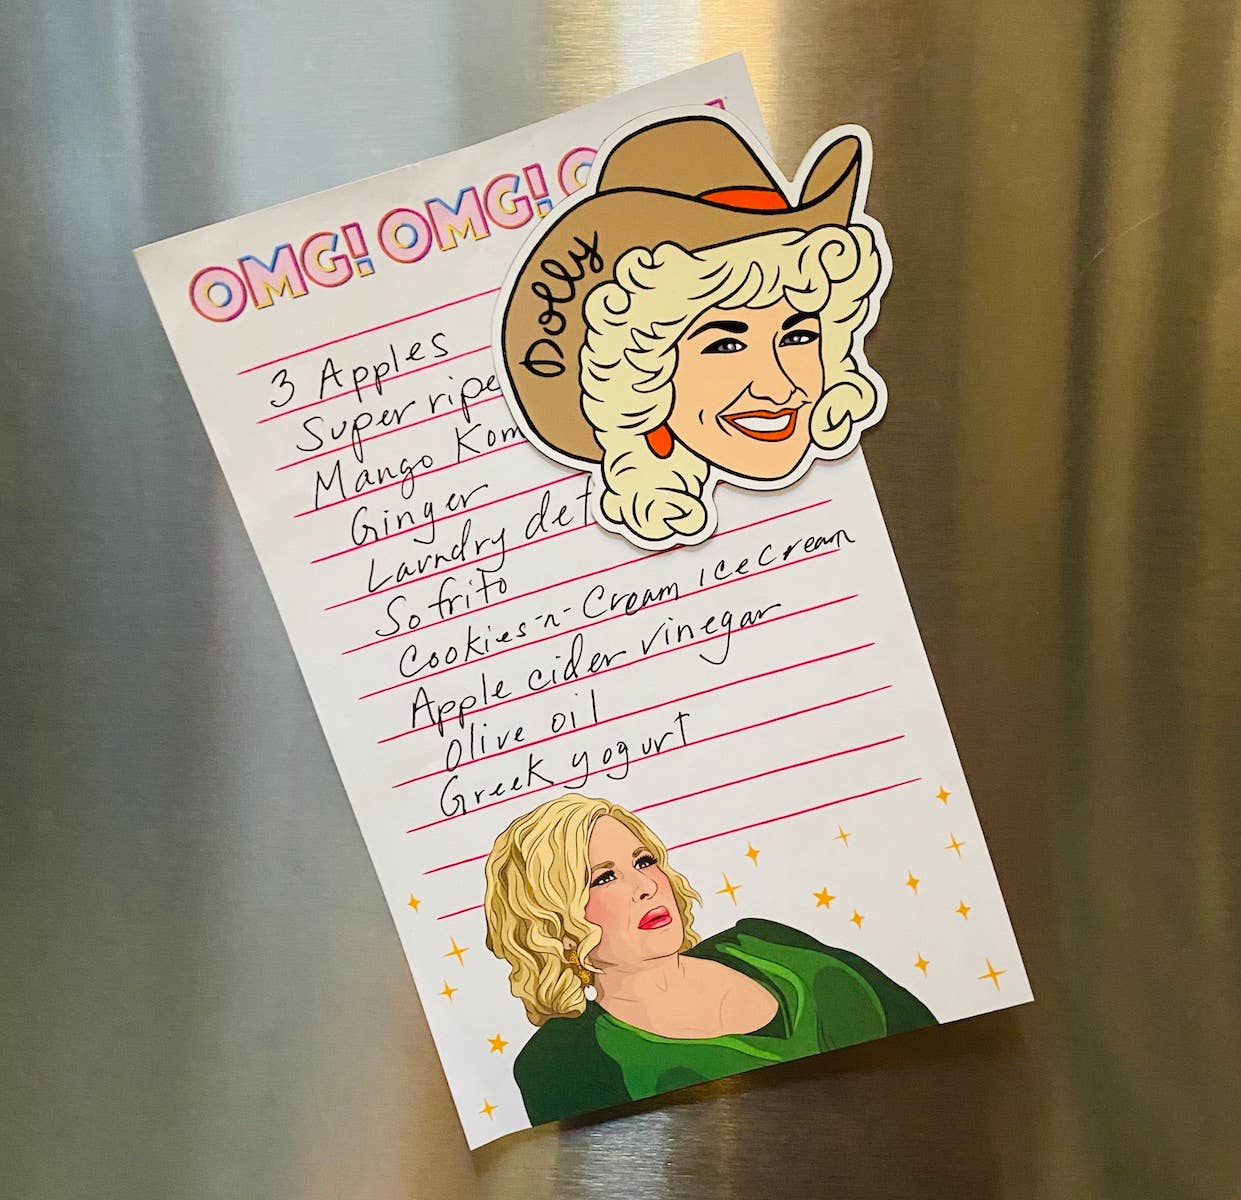 OMG! OMG! O
Dolly
3 Apples
Super ripe
Mango Kom
Ginger
Laundry det
Sofrito
Cookies-n-Cream Ice Cream
Apple cider vinegar
Olive oil
Greek yogurt